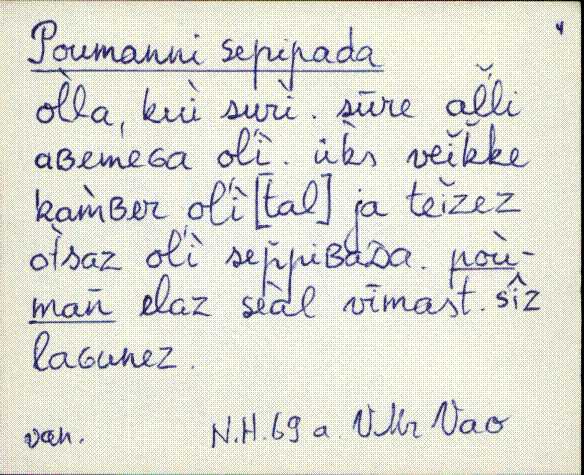 Poumanni sepipada
òlla, kuì surì. sūre al̆l̆i
aʙemeɢa ol'ì. ùks veik̆ke
kam̀ʙer ol'ì [tal] ja teìzez
òtsaz ol'ì sep̀piʙaᴅa. poù-
mañ elaz seàl vīmast. sîz
laɢunez.
væn. N.H. 69 a. VMr Vao